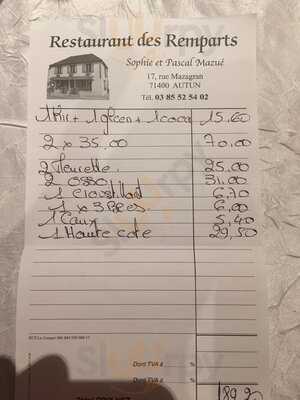 Restaurant des Remparts
Sophie et Pascal Mazué
17, rue Mazagran
71400 AUTUN
Tél. 03 85 52 54 02
1 Kir + 1 + 1 coca 15.60
2 x 35.00 70.00
2 Fleurette 25.00
2 osso 31.00
1 Croustillant 6.70
1 x 3 6.00
1 Eaux 5.40
1 Haute cote 29,50
Dont TVA à %
Dont TVA à %